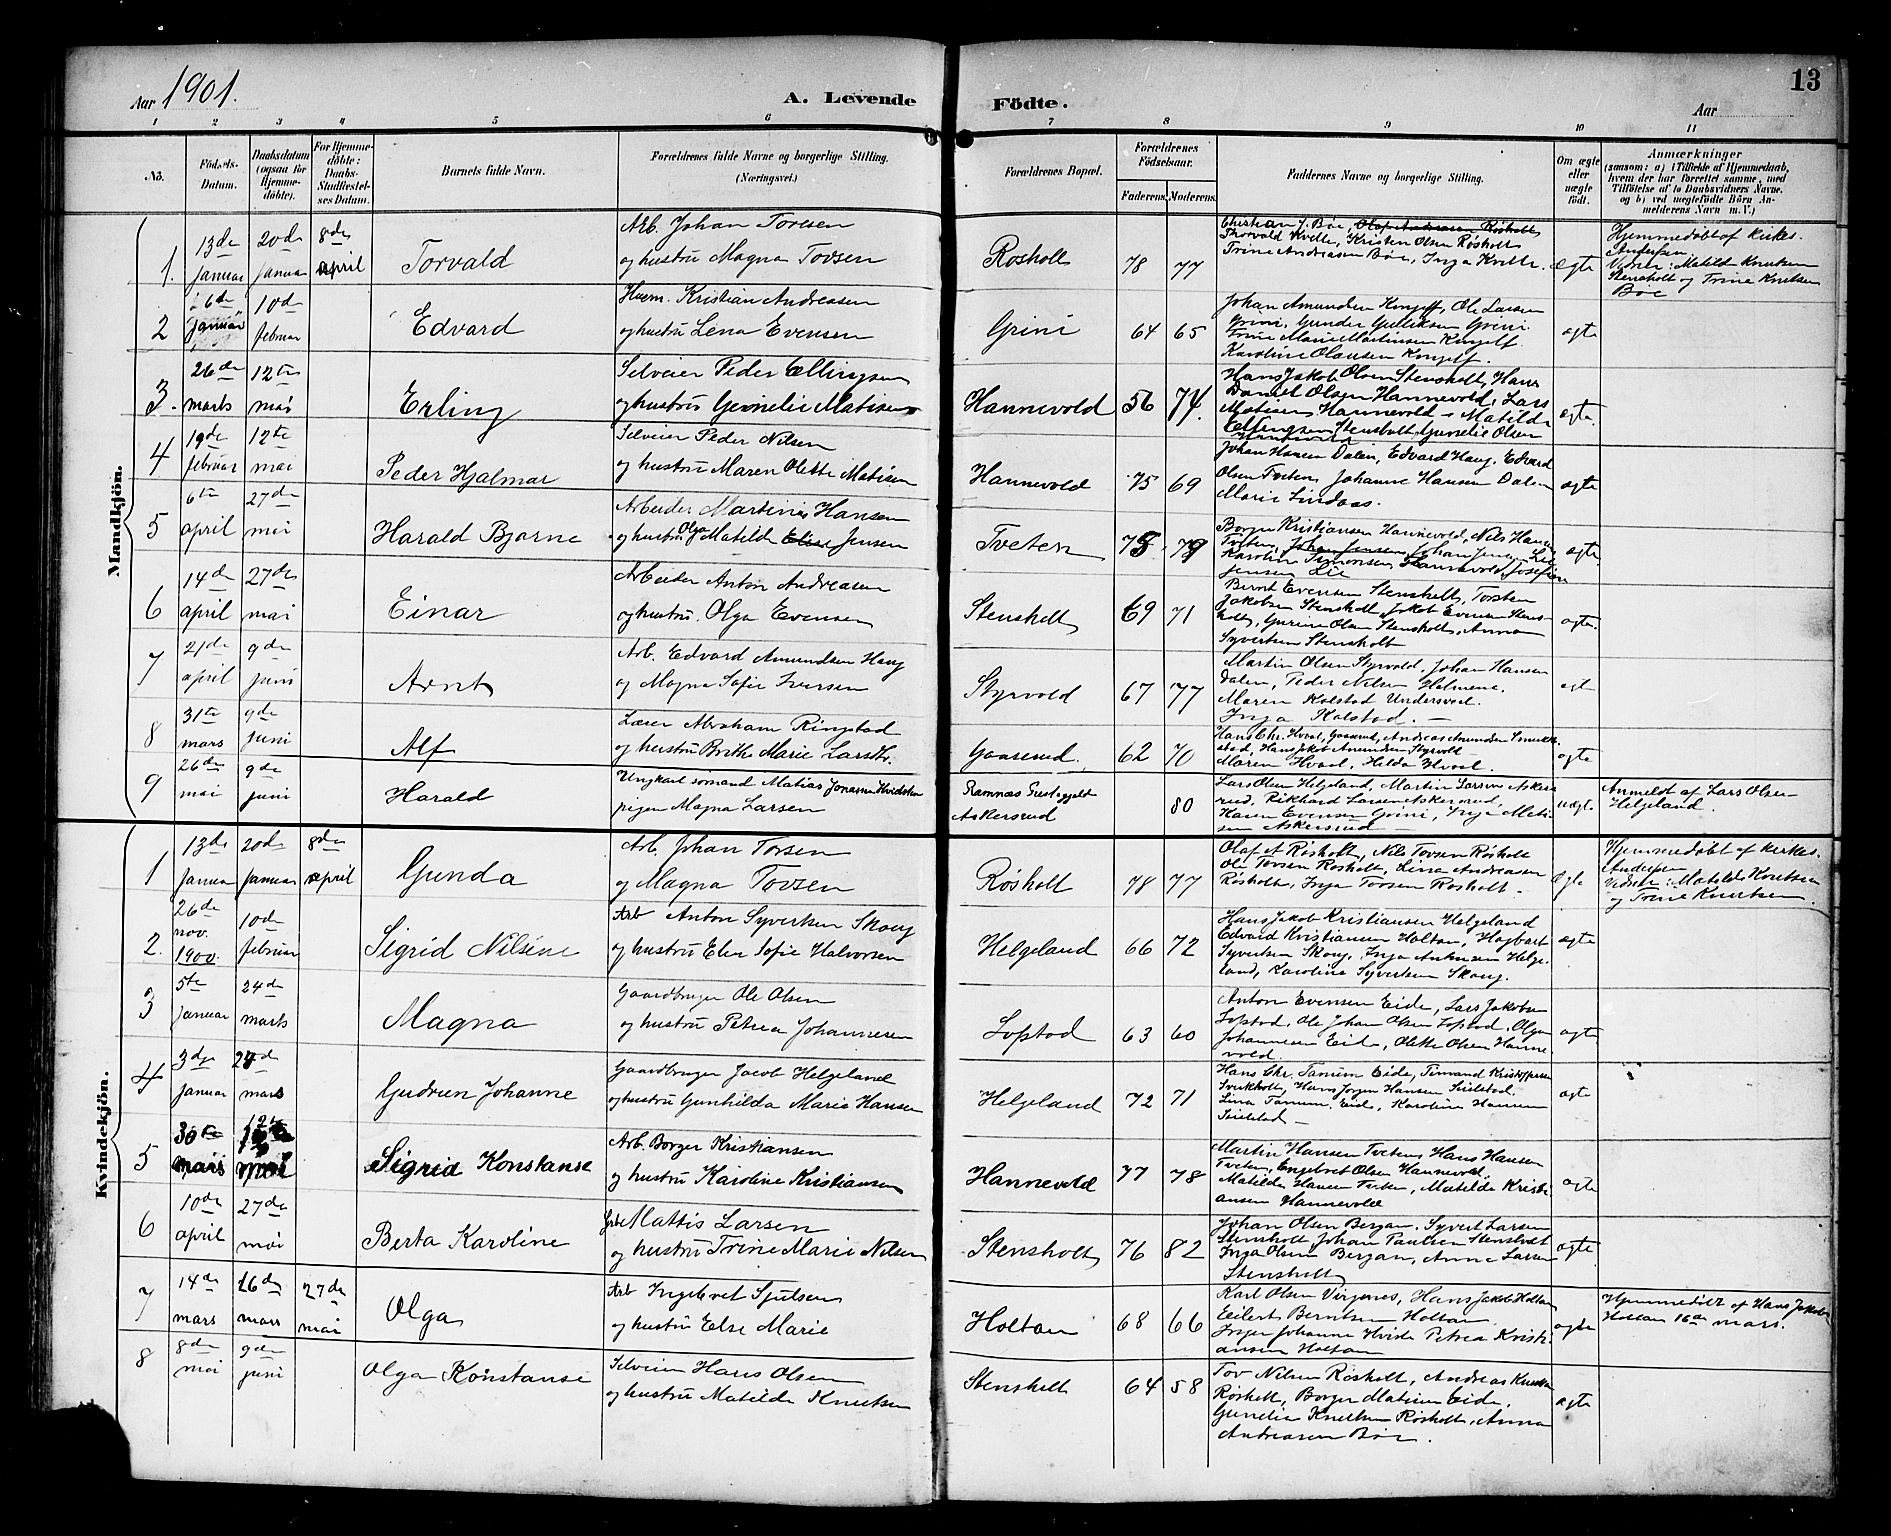 Aar 1901.
A. Levende Födte.
13
Aar
1 2 3 4 5 6 7 8 9 10 11
No.
Födsels-Datum.
Daabsdatum (ogsaa for Hjemmedöbte).
For Hjemmedöbte: Daabs-Stadfæstelses Datum.
Barnets fulde Navn.
Forældrenes fulde Navne og borgerlige Stilling. (Næringsvei.)
Forældrenes Bopæl.
Forældrenes Födselsaar.
Faderens. Moderens.
Faddernes Navne og borgerlige Stilling.
Om ægte eller uægte födt.
Anmærkninger
(saasom: a) i Tilfælde af Hjemmedaab, hvem der har forrettet samme, med Tilföielse af to Daabsvidners Navne, og b) ved uægtefödte Börn Anmelderens Navn m. V.)
Mandkjön.
1. 13de Januar 20de Januar 8de april Torvald
Arb. Johan Torsen
og hustru Magna Tovsen
Rosholt 78 77
Christian J. Bøe, Olaf Andreasen Røsholt
Thorvald Kvelle, Kristen Olsen Røsholt
Trine Andreasen Bøe, Inga Kvelle. ægte
Hjemmedøbt af kirkes.
Andersen
Vidner: Matilde Knutsen
Stensholt og Trine Knutsen
Bøe
2 6de Januar 10de februar Edvard
Husm. Kristian Andreasen
og hustru Lena Evensen
Grini 64 65
Johan Amundsen Kongelf, Ole Larsen
Grini, Gunder Gulliksen Grini.
Trine Marie Martinsen Kongelf.
Karoline Olausen Kongelf. ægte
3. 26de marts 12te mai Erling
Selveier Peder Ellingsen
og hustru Gunelie Matisen
Hannevold 56 74.
Hans Jakob Olsen Stensholt, Hans
Daniel Olsen Hannevold, Lars
Matisen Hannevold - Matilde
Ellingsen Stensholt, Gunelie Olsen
Hannevold ægte
4 19de februar 12te mai Peder Hjalmar
Selveier Peder Nilsen
og hustru Maren Olette Matisen
Hannevold 75 69
Johan Hansen Dalen, Edvard Haug, Edvard
Olsen Tveten, Johanne Hansen Dalen
Marie Lindaas. ægte
5 6te april 27de mai Harald Bjarne
Arbeider Martinius Hansen
og hustru Olga Matild Elise Jensen
Tveten 78 79
Borger Kristiansen Hannevold, Nils Hansen
Tveten, Johan Jensen Johan Jensen Lie
Karoline Simonsen Hannevold, Josefine
Jensen Lie ægte
6 14de april 27de mai Einar
Arbeider Anton Andreasen
og hustru. Olga Evensen
Stensholt 69 71
Bernt Evensen Stensholt, Torsten
Jakobsen Stensholt, Jakob Evensen Stensholt, Gurine Olsen Stensholt, Anna
Syvertsen Stensholt ægte.
7 21de april 9de juni Arnt
Arb. Edvard Amundsen Haug
og Magna Sofie Iversen
Styrvold 67 77
Martin Olsen Styrvold, Johan Hansen
Dalen, Peder Nilsen Holmene.
Maren Kolstad Undersvol
Inga Kolstad. — ægt
8 31te mars 9de juni Alf
Lærer Abraham Ringstad
og hustru Brithe Marie Larsdtr.
Gaaserud. 62 70
Hans Chr. Hvaal, Gaaserud, Andreas Amundsen
Hans Jakob Amundsen Styrvold
Maren Hvaal, Hilda Hvaal. ægte
9 26de mai 9de juni Harald
Ungkarl sømand Matias Jonasen Hvidsten
pigen Magna Larsen
Ramnæs Prestegjeld
Askersrud 80
Lars Olsen Helgeland, Martin Larsen Askersrud, Rikhard Larsen Askersrud,
Karen Evensen Grini, Inga Matisen Askersrud — uægte
Anmeldt af Lars Olsen
Helgeland.
Kvindekjön.
1 13de Januar 20de Januar 8de april Gunda
Arb. Johan Torsen
og Magna Tovsen
Røsholt 78 77
Olaf A Røsholt, Nils Tovsen Røsholt
Ole Torsen Rosholt, Lina Andreasen
Røsholt, Inga Torsen Rosholt - ægte
Hjemmedøbt af kirkes.
Andersen
Vidner: Matilde Knutsen
og Trine Knutsen.
2. 26de nov. 1900. 10de februar Sigrid Nilsine
Arb Anton Syvertsen Skoug
og hustru Elen Sofie Halvorsen
Helgeland 66 72
Hans Jakob Kristiansen Helgeland
Edvard Kristiansen Holtan, Hagbart
Syvertsen Skoug, Inga Andersen Helgeland, Karoline Syvertsen Skoug. ægte
3 5te Januar 24de marts Magna
Gaardbruger Ole Olsen
og hustru Petrea Johannesen
Lopstad 63 60
Anton Evensen Eide, Lars Jakobsen
Lopstad, Ole Johan Olsen Lopstad. Olga
Johannesen Eide, Olette Olsen Hannevold. ægte
4 3dje Januar 24de mars Gudrun Johanne
Gaardbruger Jacob Helgeland
og hustru Gunhilda Marie Hansen
Helgeland 72 71
Hans Chr. Tanum Eide, Timand Kristoffersen
Hans Jørgen Hansen Seielstad.
Lina Tanum. Eide, Karoline Hansen
Seielstad — ægte
5 30te mars 12te mai Sigrid Konstanse
Arb. Borger Kristiansen
og hustru Karoline Kristiansen
Hannevold 77 78
Martin Hansen Tveten, Hans Hansen
Tveten, Engebret Olsen Hannevold,
Matilde Hansen Tveten, Matilde Kristiansen Hannevold ægte
6 10de april 27de mai Berta Karoline
Arb Mattis Larsen
og hustru Trine Marie Nilsen
Stensholt 76 82
Johan Olsen Bergan, Syvert Larsen
Stensholt, Johan Paulsen Stensholt
Inga Olsen Bergan, Anne Larsen
Stensholt ægte
7 14de mars 26de mars 27de mai Olga
Arb Ingebret Sjulsen
og hustru Else Marie
Holtan 68 66
Karl Olsen Virgenes, Hans Jakob Holtan
Eilert Berntsen Holtan
Inger Johanne Hvide Petrea Kristiansen Holtan ægte
Hjemmedøbt af Hans Jakob
Holtan 16de mars.
8 8de mai 9de juni Olga Konstanse
Selveier Hans Olsen
og hustru Matilde Knutsen
Stensholt 64 58
Tov Nilsen Røsholt, Andreas Knutsen
Røsholt, Borger Matisen Eide,
Gunelia Knutsen Røsholt, Anna
Andreasen Bøe. ægte